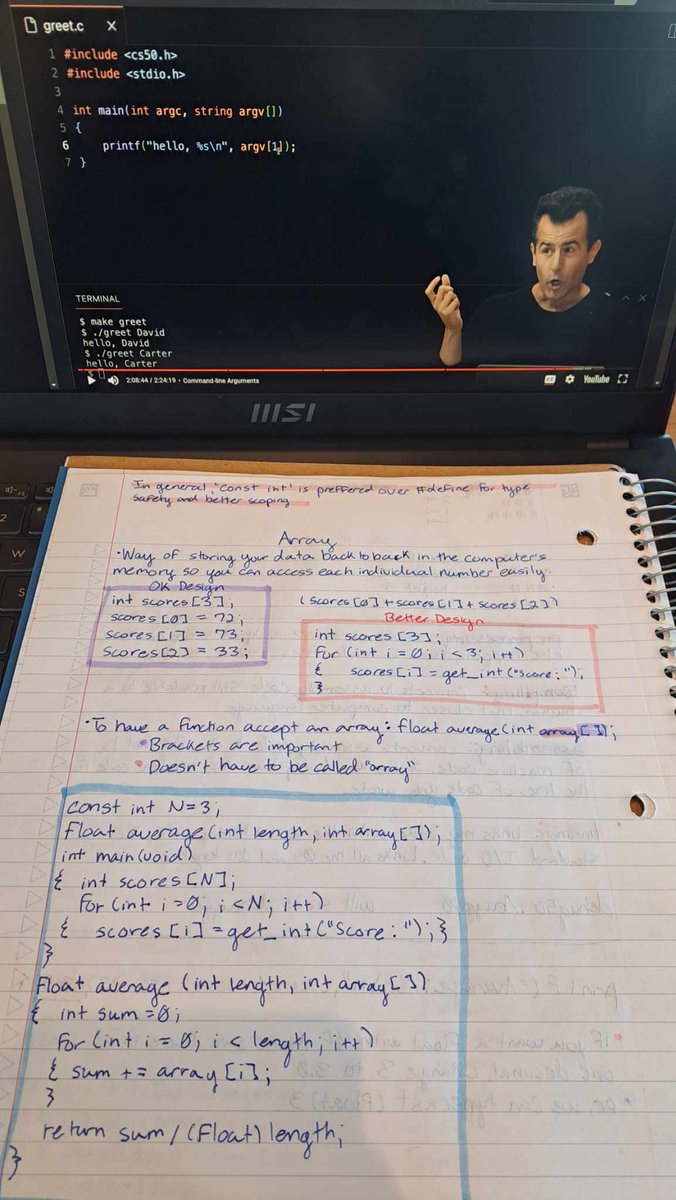 greet.c ×
1 #include <cs50.h>
2 #include <stdio.h>
3
4 int main(int argc, string argv[])
5 {
6 printf("hello, %s\n", argv[1]);
7 }
TERMINAL
$ make greet
$ ./greet David
hello, David
$ ./greet Carter
hello, Carter
$
2:08:44 / 2:24:19 • Command-line Arguments
CC
YouTube
msi
W
S
In general, 'const int' is preffered over #define for type
safety and better scoping
Array
• Way of storing your data back to back in the computer's
memory so you can access each individual number easily.
OK Design
int scores[3];
scores[0] = 72;
scores[1] = 73;
scores[2] = 33;
(scores[0]+scores[1]+scores[2])
Better Design
int scores[3];
for (int i = 0; i < 3; i++)
{ scores[i] = get_int("Score: ");
}
• To have a function accept an array: float average(int array[]);
• Brackets are important
• Doesn't have to be called "array"
const int N=3;
float average(int length, int array[]);
int main(void)
{ int scores[N];
for (int i=0; i<N; i++)
{ scores[i] = get_int("Score: ");}
}
float average (int length, int array[])
{ int sum =0;
for (int i = 0; i < length; i++)
{ sum += array[i];
}
return sum / (float) length;
}